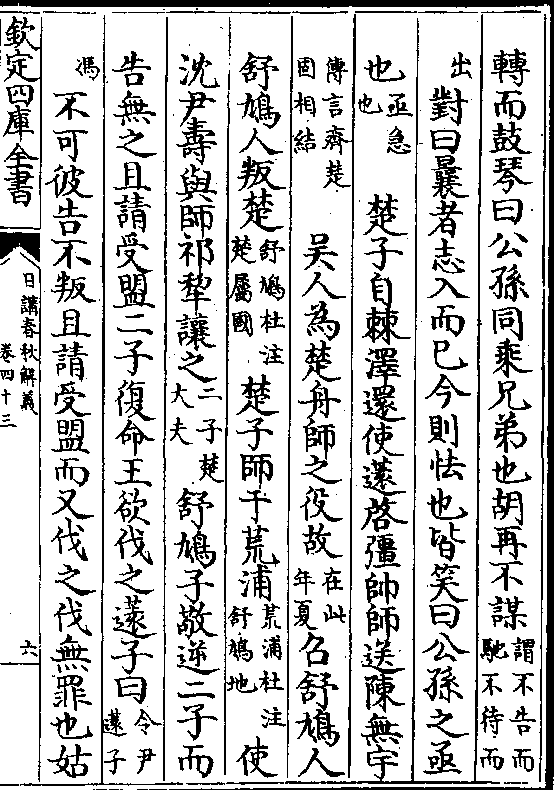 轉而鼓琴曰公孫同乘兄弟也胡再不謀謂不告而馳不待而
出對曰曩者志入而已今則怯也皆笑曰公孫之亟
也亟急也楚子自棘澤還使薳啓彊帥師送陳無宇
傳言齊楚固相結吳人為楚舟師之役故在此年夏召舒鳩人
舒鳩人叛楚舒鳩杜注楚屬國楚子師于荒浦荒浦杜注舒鳩地使
沈尹壽與師祁犂讓之二子楚大夫舒鳩子敬逆二子而
告無之且請受盟二子復命王欲伐之薳子曰令尹薳子
馮不可彼告不叛且請受盟而又伐之伐無罪也姑
欽定四庫全書
日講春秋解義
卷四十三
六